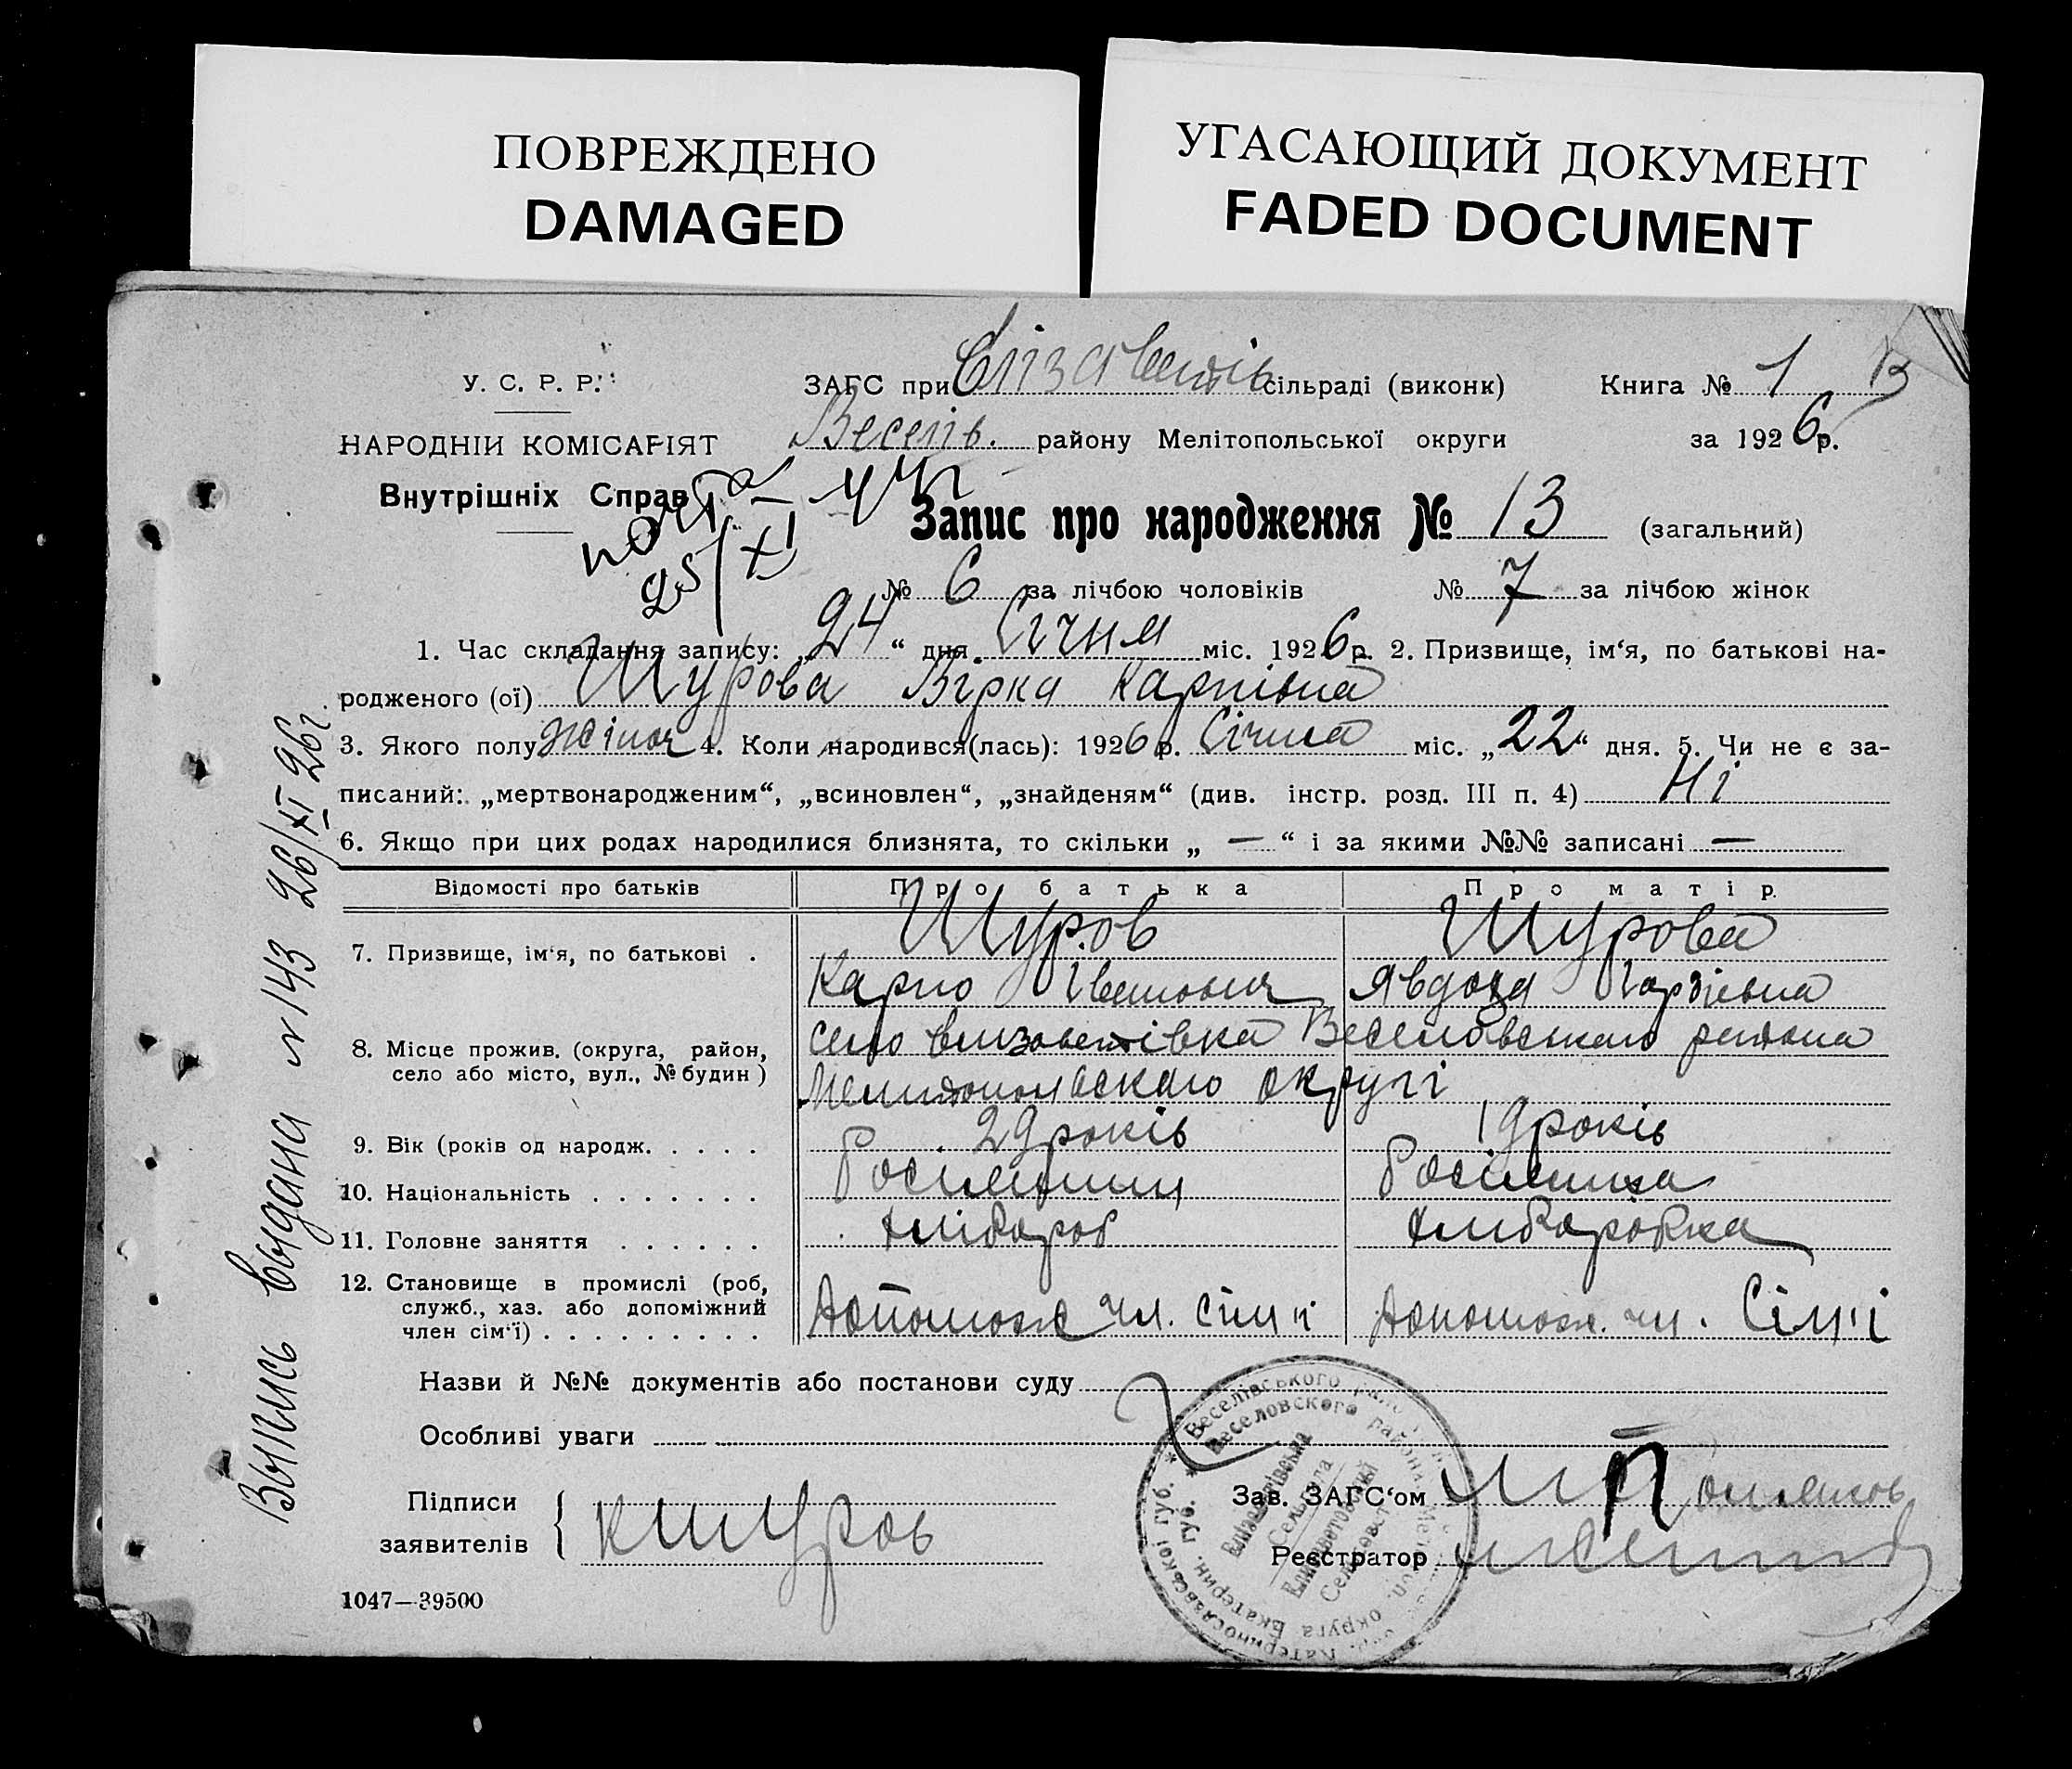 ПОВРЕЖДЕНО
DAMAGED
УГАСАЮЩИЙ ДОКУМЕНТ
FADED DOCUMENT
У. С. Р. Р.
НАРОДНІЙ КОМІСАРІЯТ
Внутрішніх Справ
ЗАГС при Єлізаветів сільраді (виконк)
Веселів. району Мелітопольської округи
Книга № 1
за 1926 р.
25/XI
Запис про народження № 13 (загальний)
№ 6 за лічбою чоловіків № 7 за лічбою жінок
1. Час складання запису: „24“ дня Січня міс. 1926 р. 2. Призвище, ім‘я, по батькові на-
родженого (ої) Шурова Вірка Карпівна
3. Якого полу жіноч 4. Коли народився(лась): 1926 р. Січня міс. „22“ дня. 5. Чи не є за-
писаний: „мертвонародженим“, „всиновлен“, „знайденям“ (див. інстр. розд. III п. 4) Ні
6. Якщо при цих родах народилися близнята, то скільки „ — “ і за якими №№ записані —
Відомості про батьків Про батька Про матір
7. Призвище, ім‘я, по батькові . Шуров Шурова
Карпо Іванович Явдоха
8. Місце прожив. (округа, район,
село або місто, вул., № будин)
село Єлизаветівка Веселовського района
Мелитопольскаго округі
9. Вік (років од народж. . . . . 29 років 19 років
10. Національність . . . . . . . Росіянин Росіянка
11. Головне заняття . . . . . . Хлібороб Хліборобка
12. Становище в промислі (роб,
служб., хаз. або допоміжний
член сім‘ї) . . . . . . . . .
Допомож чл. сімʼї Допомож. чл. Сімʼї
Назви й №№ документів або постанови суду
Особливі уваги
Підписи
заявителів
КШуров
Зав. ЗАГС‘ом
Реєстратор
1047—39500
Выпись выдана №143 26/XI 26г.
Веселівського
Веселовского района
Єлізаветівська
Сельрада
Катеринославської губ.
округа Екатерин. губ.